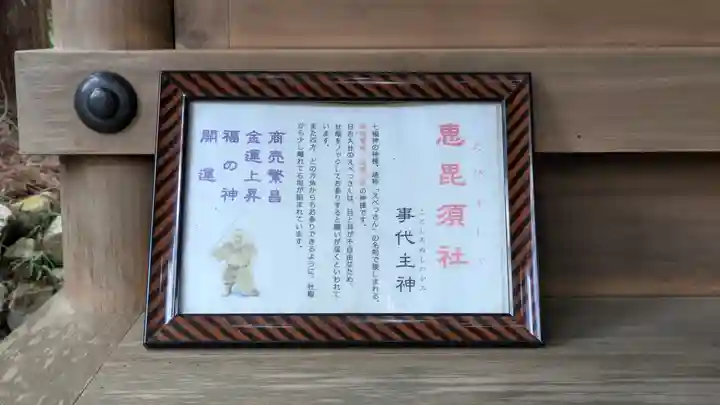 恵毘須社
えびすしゃ
事代主神
ことしろぬしのかみ
七福神の神様、通称「えべっさん」の名前で親しまれる、
の神様です。
日吉大社のえべっさんは、目と耳が不自由なため、
社殿をノックしてお参りすると願いが届くといわれて
います。
また四方、どの方角からもお参りできるように、社殿
から少し離れてる垣が組まれています。
商売繁昌
金運上昇
福の神
開運